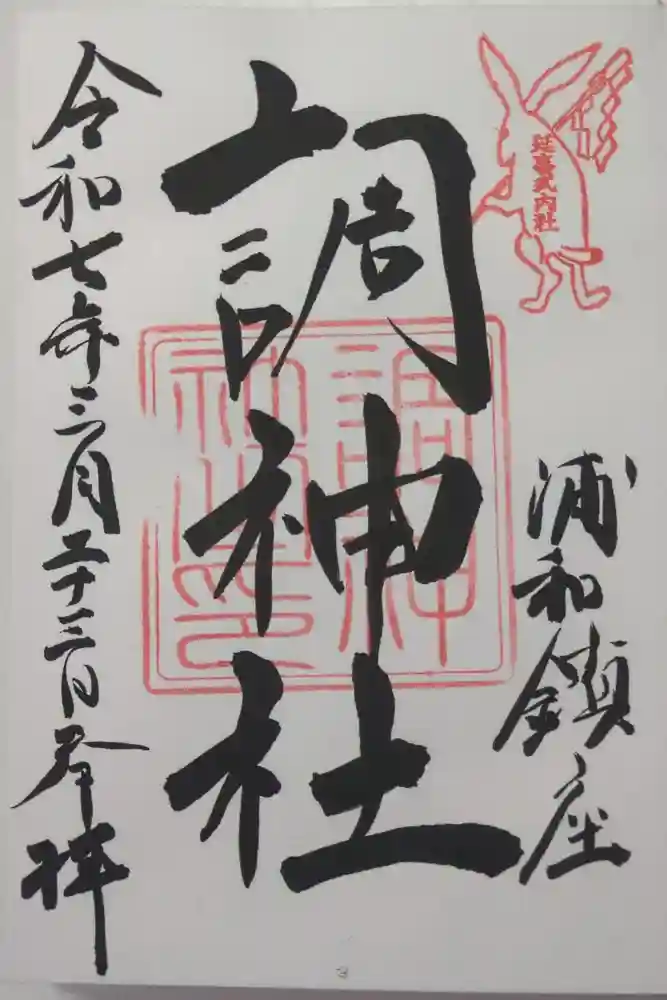 延喜式内社
浦和鎮座
調神社
調神社印
令和七年三月二十三日参拝